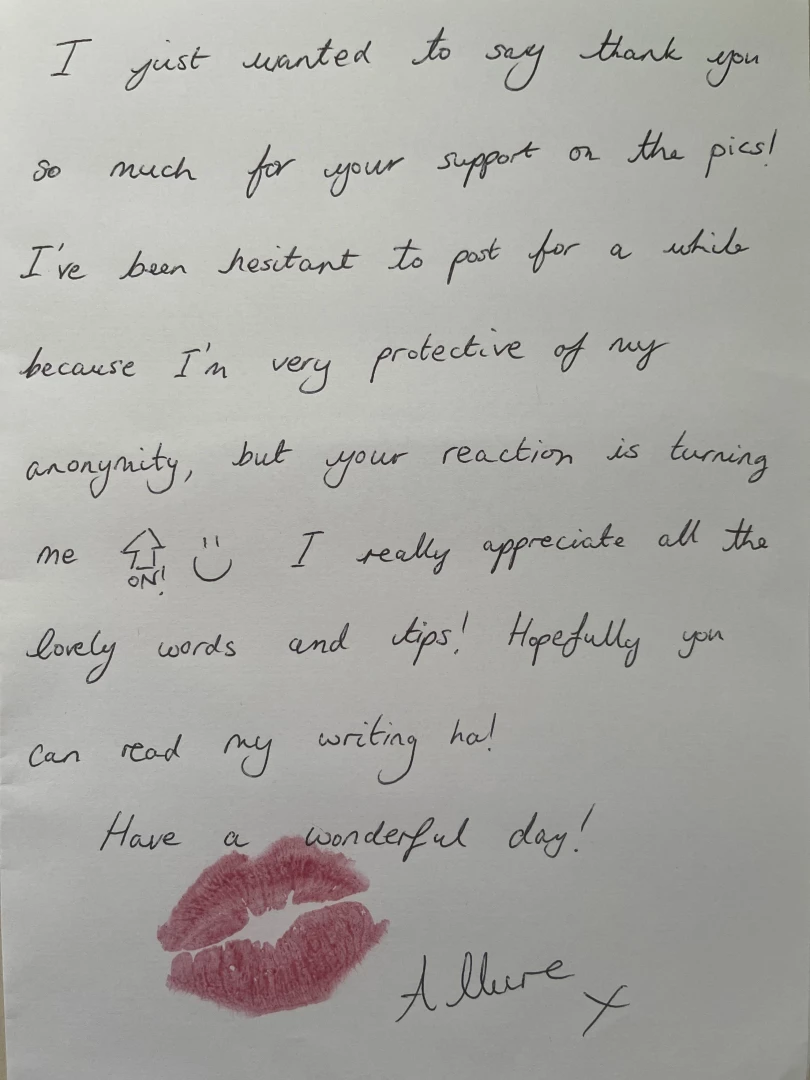 I just wanted to say thank you
so much for your support on the pics!
I've been hesitant to post for a while
because I'm very protective of my
anonymity, but your reaction is turning
me ON! I really appreciate all the
lovely words and tips! Hopefully you
can read my writing ha!
Have a wonderful day!
Allure x